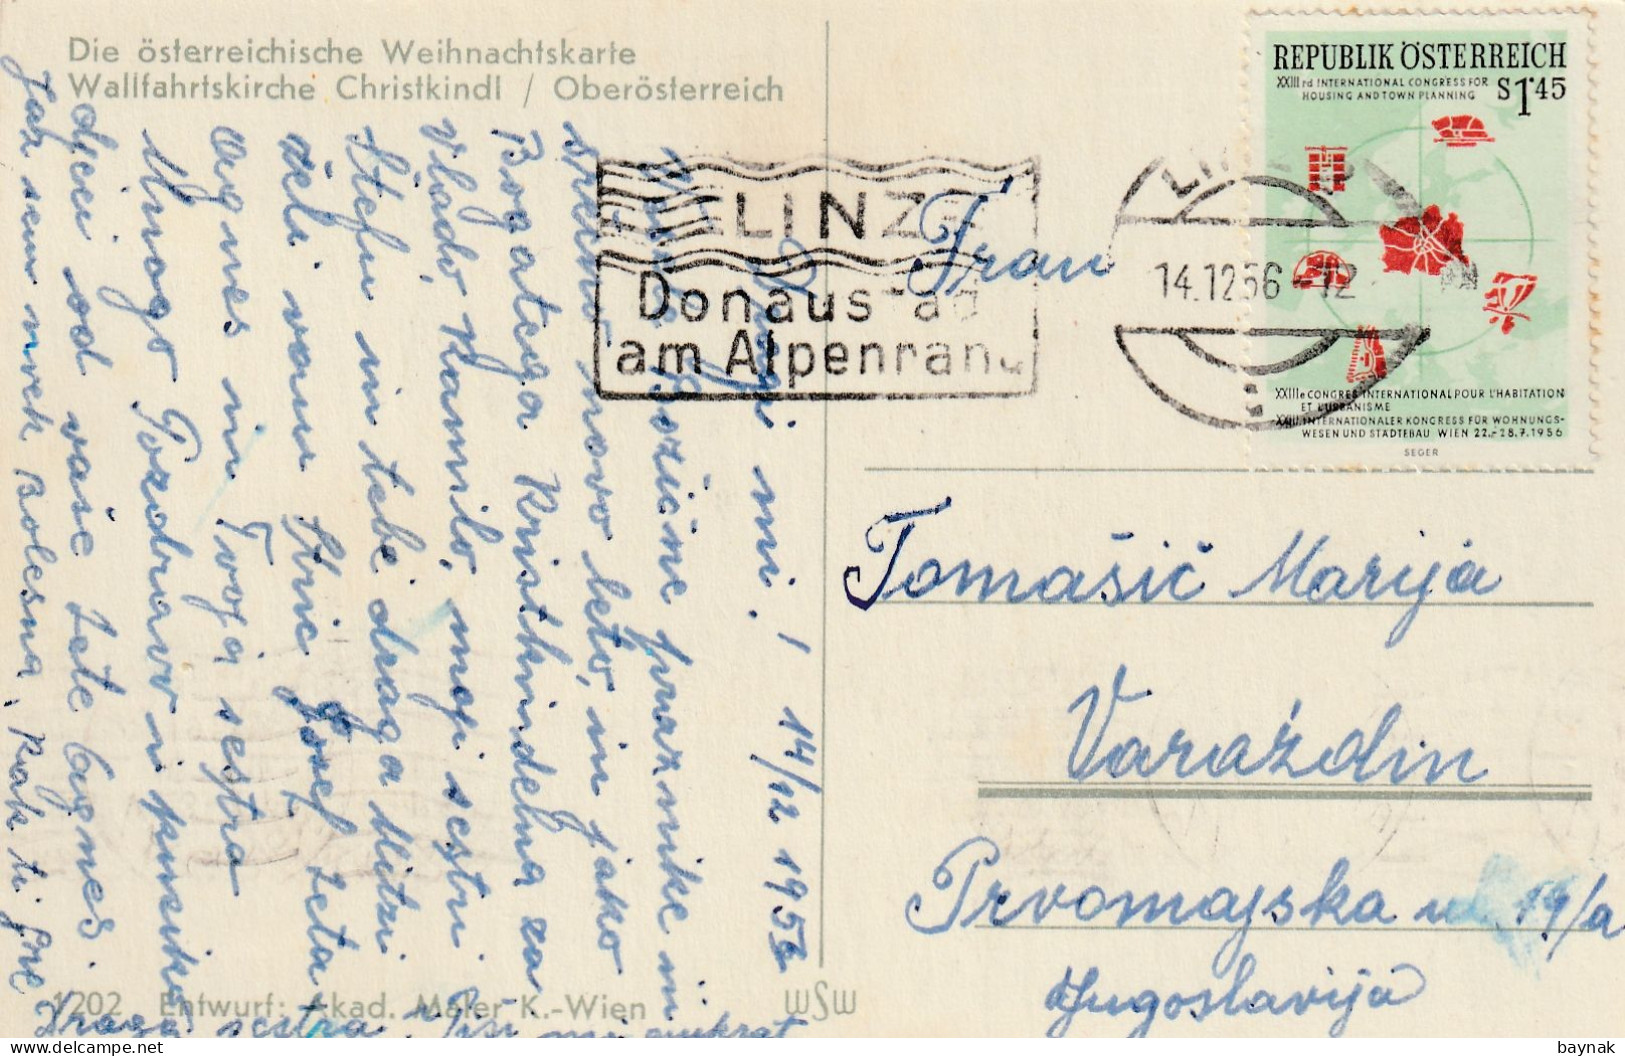 Die österreichische Weihnachtskarte
Wallfahrtskirche Christkindl / Oberösterreich
REPUBLIK ÖSTERREICH
XXIII rd INTERNATIONAL CONGRESS FOR
HOUSING AND TOWN PLANNING
S 1.45
XXIIIe CONGRES INTERNATIONAL POUR L'HABITATION
ET L'URBANISME
XXIII INTERNATIONALER KONGRESS FÜR WOHNUNGS-
WESEN UND STÄDTEBAU WIEN 22.-28.7.1956
SEGER
LINZ
Donaustad
am Alpenrand
LINZ
14.12.56 - 12
Frau
Tomašič Marija
Varaždin
Prvomajska ul. 19/a
Jugoslavija
Dragi mi! 14/12 1956
božične praznike in
srečno novo leto, in jako
Bogatega Kristkindelna za
Vlado, Kamilo, moji sestri
Štefu in tebi draga Mitzi
želi vam Stric Josef teta
Agnes in Tvoja sestra
Mnogo Pozdravov i pusickov
djeci od vaše tete Agnes.
Jaz sem Bolesna, kak ti
Draga sestra, Piši mi
1202 Entwurf: Akad. Maler K.-Wien
wSw
baynak